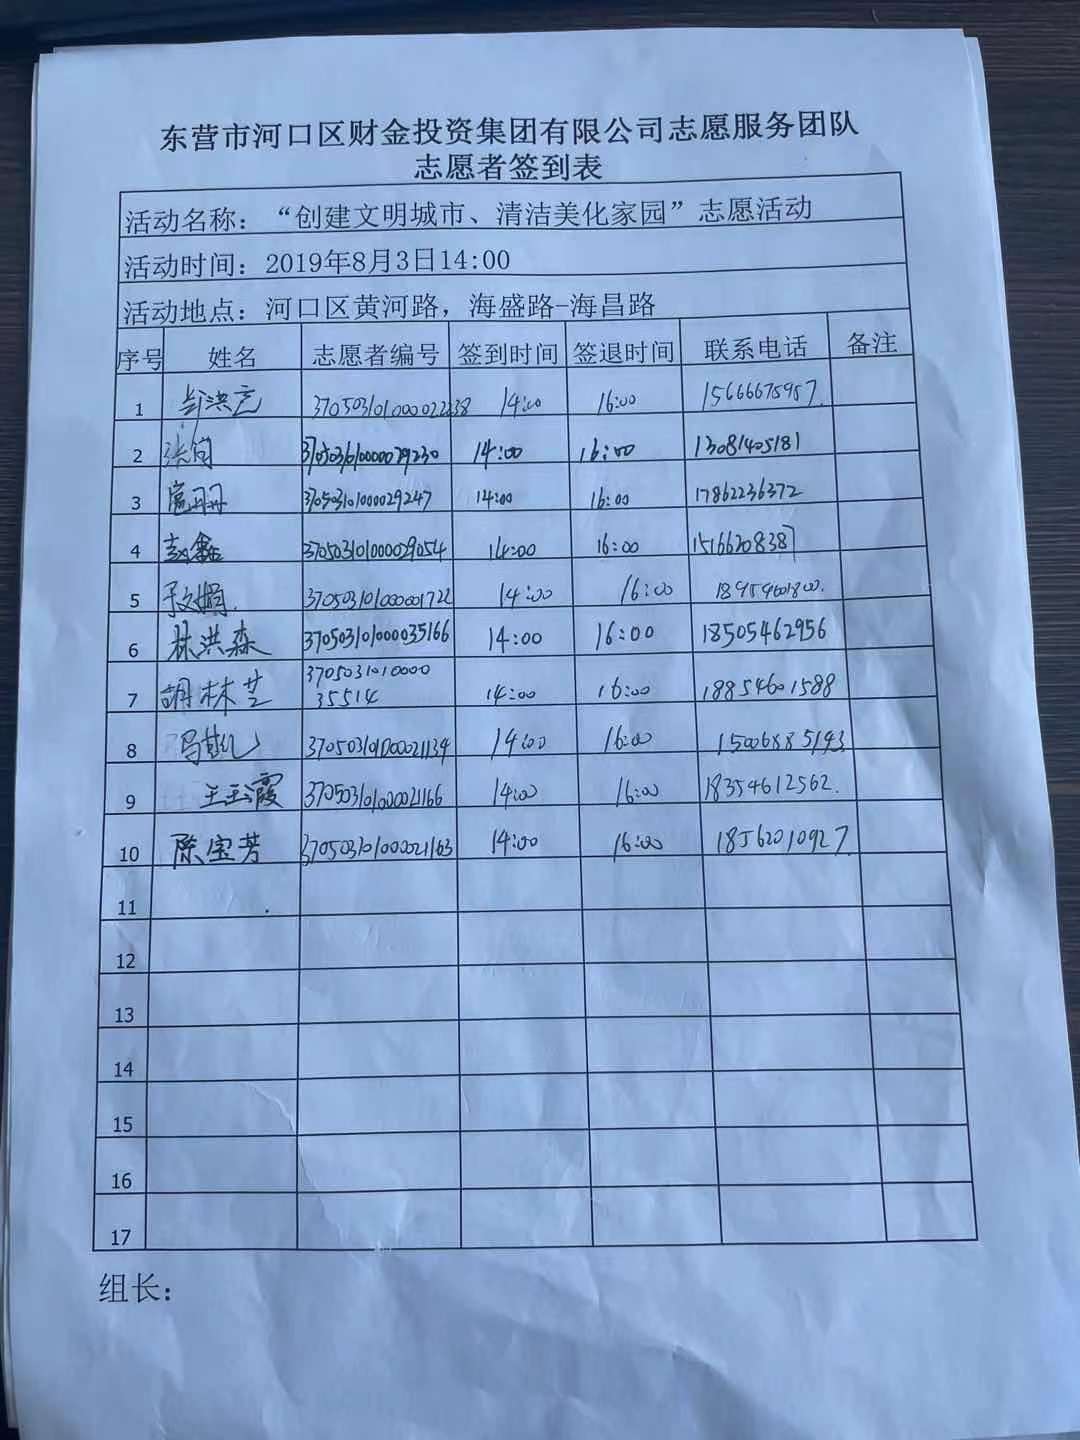 东营市河口区财金投资集团有限公司志愿服务团队
志愿者签到表
活动名称：“创建文明城市、清洁美化家园”志愿活动
活动时间：2019年8月3日14:00
活动地点：河口区黄河路，海盛路-海昌路
序号 姓名 志愿者编号 签到时间 签退时间 联系电话 备注
1 14:00 16:00 15666675957
2 14:00 16:00 13081405181
3 370503101000029247 14:00 16:00 17862236372
4 赵鑫 370503101000029054 14:00 16:00
5 14:00 16:00
6 林洪森 370503101000035166 14:00 16:00 18505462956
7 胡林芝 3705031010000
35514 14:00 16:00 18854601588
8 370503101000021134 14:00 16:00 15006885193
9 王玉霞 370503101000021166 14:00 16:00 18354612562
10 陈宝芳 370503101000021163 14:00 16:00 18562010927
11
12
13
14
15
16
17
组长：